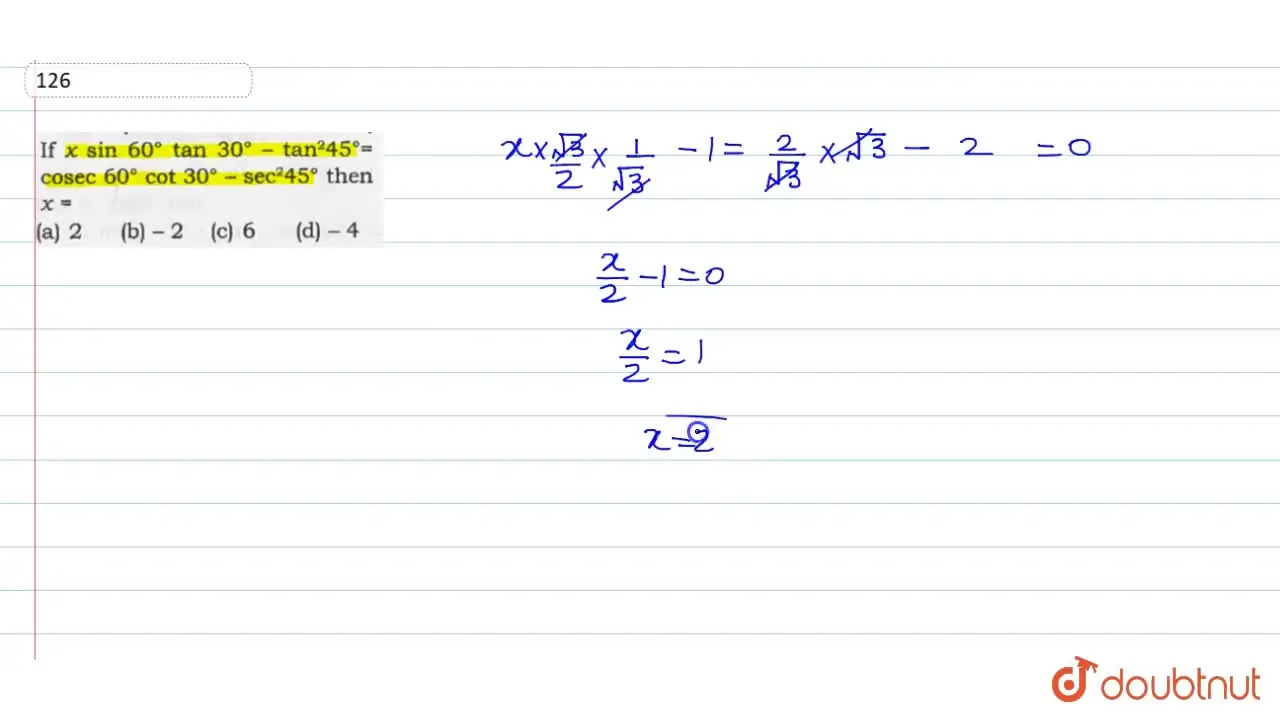 126
If x sin 60° tan 30° – tan²45°=
cosec 60° cot 30° – sec²45° then
x =
(a) 2 (b) – 2 (c) 6 (d) – 4
x × √3/2 × 1/√3 – 1 = 2/√3 × √3 – 2 = 0
x/2 – 1 = 0
x/2 = 1
x = 2
doubtnut